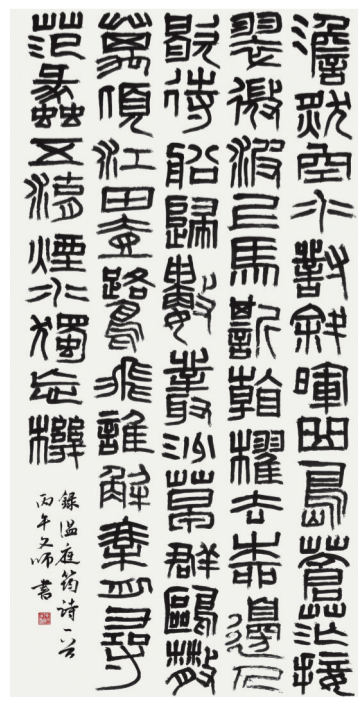 澹然空水對斜暉曲島蒼茫接
翠微波上馬嘶看櫂去柳邊人
歇待船歸數叢沙草群鷗散
萬頃江田壹鷺飛誰解乘舟尋
范蠡五湖煙水獨忘機
錄溫庭筠詩一首
丙午文師書